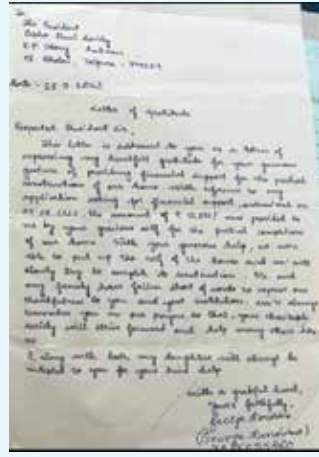 To
The President
Society
Letter of gratitude
Respected President Sir,
This letter is addressed to you as a token of
expressing my heartfelt gratitude for your generous
gesture of providing financial support for the partial
construction of our home. With reference to my
application asking for financial support, submitted on
the amount of ₹ was provided to
us by your gracious self for the partial completion
of our home. With your generous help, we were
able to put up the roof of the house and we will
slowly try to complete its construction. Me and
my family have fallen short of words to express our
thankfulness to you and your institution. We'll always
remember you in our prayers so that, your charitable
society will strive forward and help many others like
us.
I, along with both my daughters will always be
indebted to you for your kind help.
With a grateful heart,
Yours faithfully,
George
(George